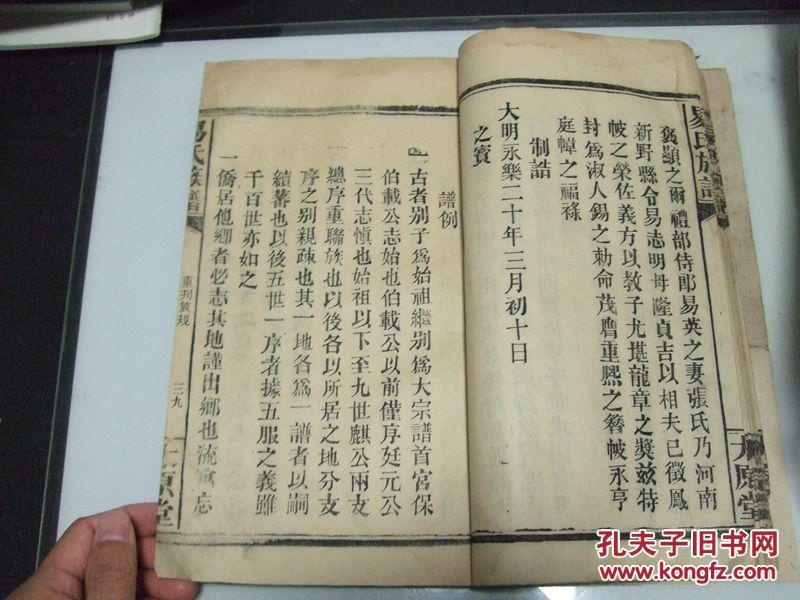 易氏族譜
太原堂
褒顯之爾禮部侍郎易英之妻張氏乃河南
新野縣令易志明母隆貞吉以相夫已徵鳳
帔之榮佐義方以教子尤堪龍章之獎兹特
封爲淑人錫之勅命茂膺重熙之簪帔永亨
庭幃之福祿
制誥
大明永樂二十年三月初十日
之寳
譜例
一古者別子爲始祖繼別爲大宗譜首宮保
伯載公志始也伯載公以前僅序廷元公
三代志愼也始祖以下至九世麒公兩支
總序重聯族也以後各以所居之地分支
序之別親疎也其一地各爲一譜者以嗣
續蕃也以後五世一序者據五服之義雖
千百世亦如之
一僑居他鄉者必志其地謹出鄉也流寓忘
易氏族譜
重刊族規
三九
太原堂
孔夫子旧书网
www.kongfz.com